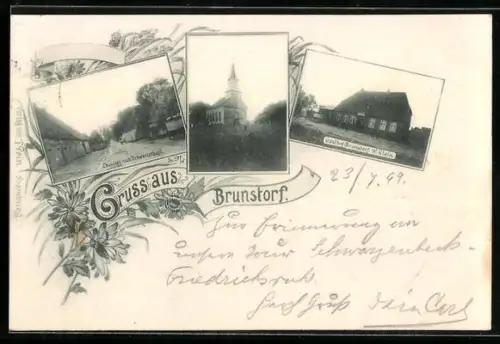 Chaussee nach Schwarzenbek
Gasthof Brunstorf W. Stein
Gruss aus
Brunstorf.
23/7.99.
Zur Erinnerung an
unsere Tour Schwarzenbeck-
Friedrichsruh.
Herzl Gruß Dein Carl